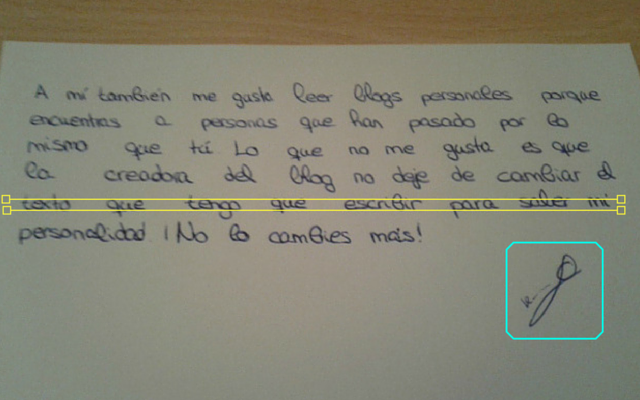 A mí también me gusta leer blogs personales porque
encuentras a personas que han pasado por lo
mismo que tú. Lo que no me gusta es que
la creadora del blog no deje de cambiar el
texto que tengo que escribir para saber mi
personalidad ¡No lo cambies más!